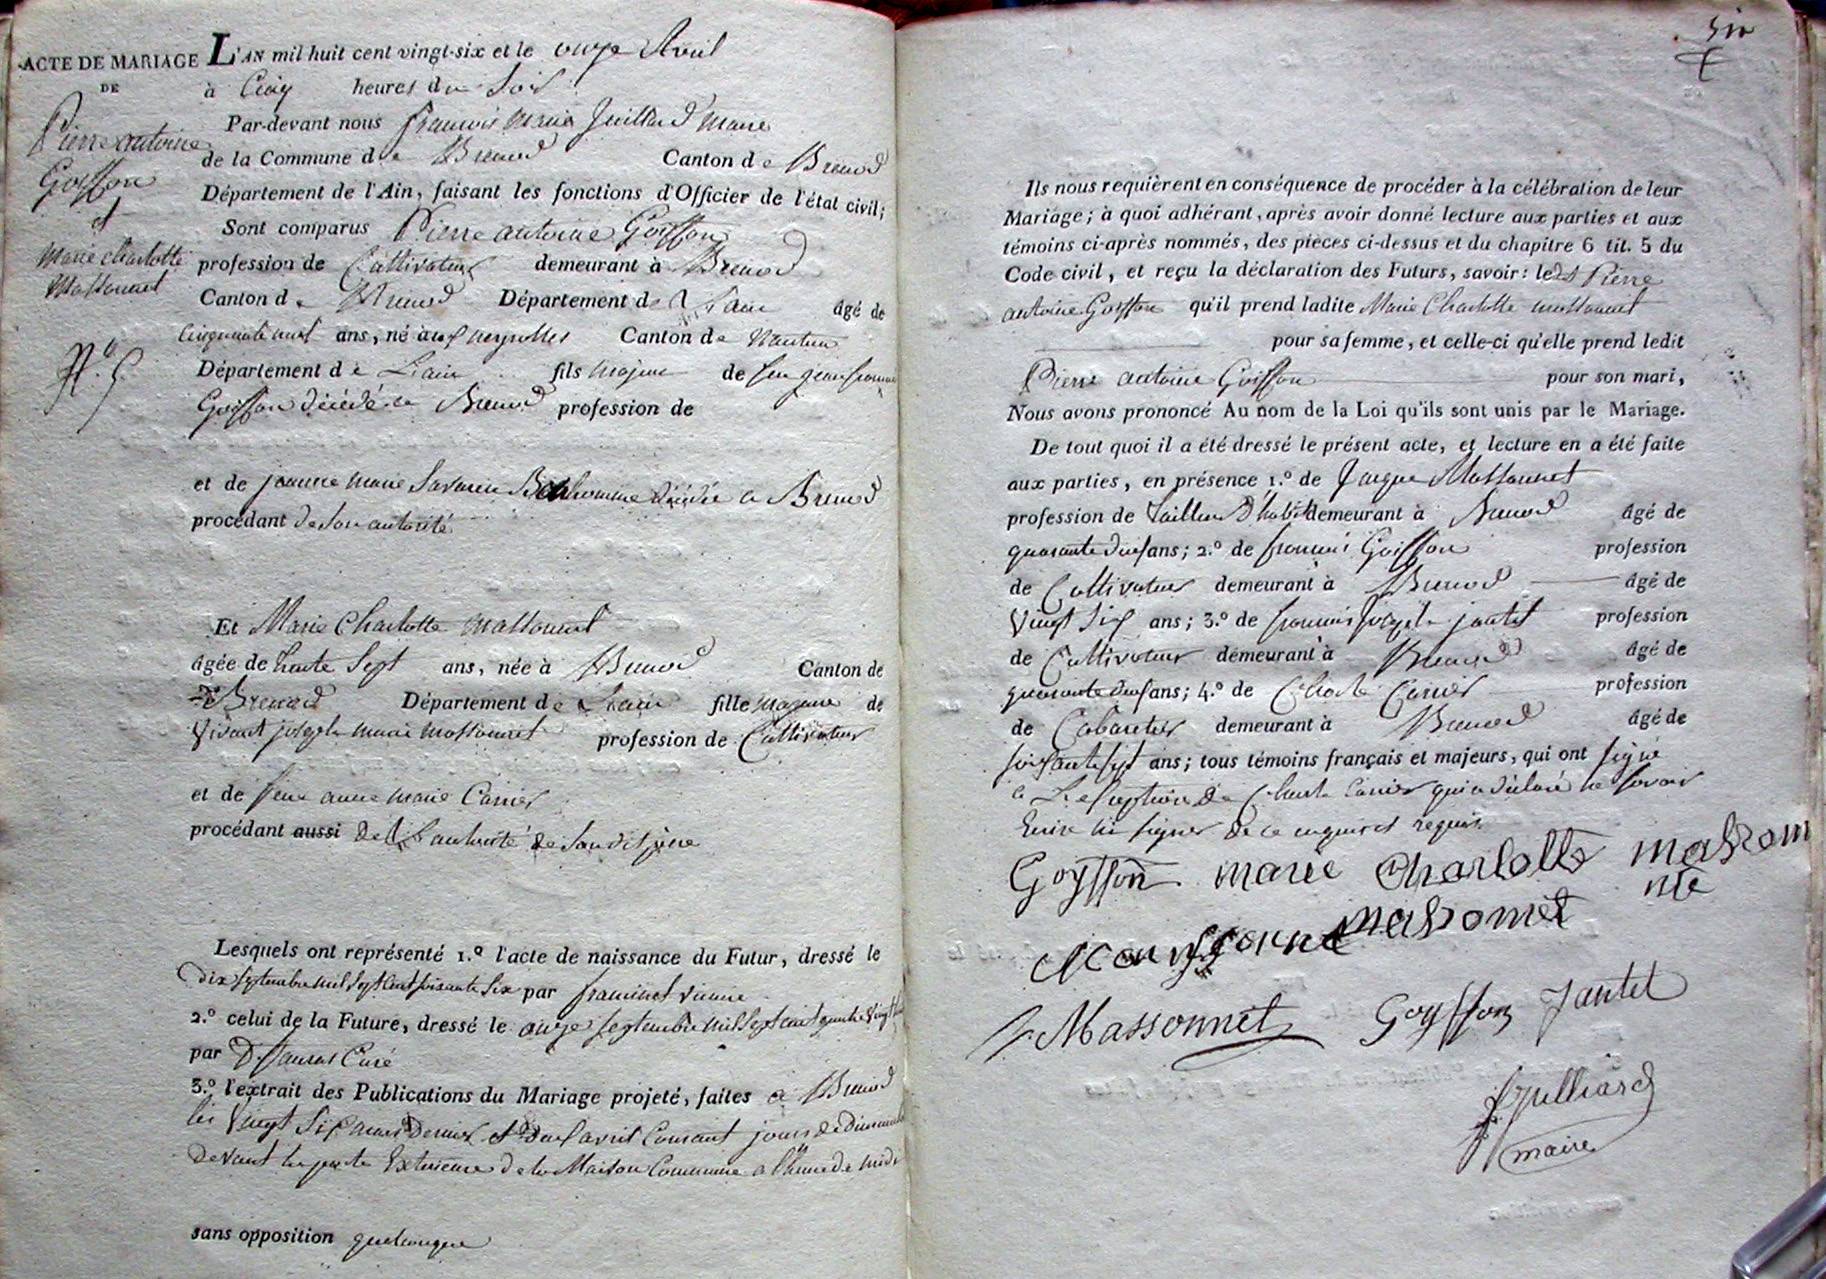 ACTE DE MARIAGE
DE
Pierre antoine
Goyffon
et
Marie charlotte
Massonnet
N.º 5
L'AN mil huit cent vingt-six et le onze Avril
à Cinq heures du Soir
Par-devant nous francois marie Juilliard maire
de la Commune de Brenod Canton de Brenod
Département de l'Ain, faisant les fonctions d'Officier de l'état civil;
Sont comparus Pierre antoine Goiffon
profession de Cultivateur demeurant à Brenod
Canton de Brenod Département de l'ain âgé de
Cinquante neuf ans, né aux neyrolles Canton de Nantua
Département de L'ain fils majeur de feu jean francois
Goiffon décédé a Brenod profession de
et de jeanne marie Savarin Bonhomme décédée a Brenod
procédant de son autorité
Et Marie Charlotte massonnet
âgée de trente Sept ans, née à Brenod Canton de
Brenod Département de L'ain fille majeure de
Vivant joseph marie massonnet profession de Cultivateur
et de feue anne marie Carrier
procédant aussi de l'autorité de Son dit père
Lesquels ont représenté 1.º l'acte de naissance du Futur, dressé le
dix septembre mil Sept Cent soixante Six par vicaire
2.º celui de la Future, dressé le onze septembre mil Sept cent quatre Vingt
par Curé
3.º l'extrait des Publications du Mariage projeté, faites a Brenod
les Vingt Six mars Dernier et deux avril Courant jours de dimanche
devant la porte Extérieure de la Maison Commune a l'heure de midi
sans opposition quelconque
six
Ils nous requièrent en conséquence de procéder à la célébration de leur
Mariage; à quoi adhérant, après avoir donné lecture aux parties et aux
témoins ci-après nommés, des pièces ci-dessus et du chapitre 6 tit. 5 du
Code civil, et reçu la déclaration des Futurs, savoir: ledit Pierre
antoine Goiffon qu'il prend ladite Marie Charlotte massonnet
pour sa femme, et celle-ci qu'elle prend ledit
Pierre antoine Goiffon pour son mari,
Nous avons prononcé Au nom de la Loi qu'ils sont unis par le Mariage.
De tout quoi il a été dressé le présent acte, et lecture en a été faite
aux parties, en présence 1.º de Jacque Massonnet
profession de Tailleur d'habit demeurant à Brenod âgé de
quarante deux ans; 2.º de francois Goiffon profession
de Cultivateur demeurant à Brenod âgé de
Vingt Six ans; 3.º de francois joseph jantet profession
de Cultivateur demeurant à Brenod âgé de
quarante deux ans; 4.º de Charle Carrier profession
de Cabaretier demeurant à Brenod âgé de
soixante sept ans; tous témoins français et majeurs, qui ont signé
a L'exeption de Charle Carrier qui a déclaré ne Savoir
Ecrire ni signer de ce enquis et requis
Goyffon marie Charlotte massom
nte
massonnet
Massonnet Goyffon Jantet
Juilliard
maire